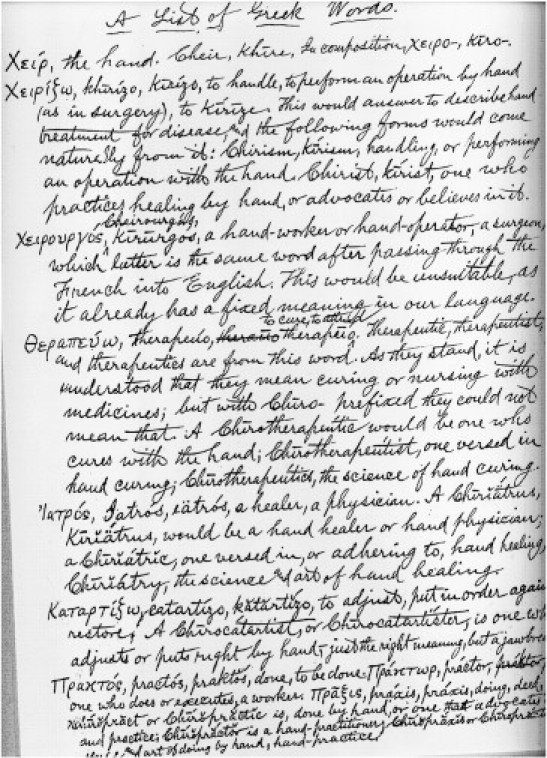 A List of Greek Words.
Χείρ, the hand. Cheir, Khire, In composition, Χειρο-, Kiro-.
Χειρίζω, khirizo, kirizo, to handle, to perform an operation by hand
(as in surgery), to Kirize. This would answer to describe hand
treatment for disease, and the following forms would come
naturally from it: Chirism, Kirism, handling, or performing
an operation with the hand. Chirist, Kirist, one who
practices healing by hand, or advocates or believes in it.
Cheirourgos,
Χειρουργός, Kirurgos, a hand-worker or hand-operator, a surgeon,
which latter is the same word after passing through the
French into English. This would be unsuitable, as
it already has a fixed meaning in our language.
to cure, to attend
Θεραπεύω, therapeuo, therapeio. Therapeutic, therapeutist,
and therapeutics are from this word. As they stand, it is
understood that they mean curing or nursing with
medicines; but with Chiro- prefixed they could not
mean that. A Chirotherapeutic would be one who
cures with the hand; Chirotherapeutist, one versed in
hand curing; Chirotherapeutics, the science of hand curing.
Ἰατρός, Iatrós, iatrós, a healer, a physician. A Chiriatrus,
Kiriatrus, would be a hand healer or hand physician;
a Chiriatric, one versed in, or adhering to, hand healing,
Chiriatry, the science and art of hand healing.
Καταρτίζω, catartizo, katartizo, to adjust, put in order again
restore; A Chirocatartist, or Chirocatartister, is one who
adjusts or puts right by hand, just the right meaning, but a jawbreaker
Πρακτός, practós, praktós, done, to be done. Πράκτωρ, practor, praktor,
one who does or executes, a worker. Πρᾶξις, praxis, praxis, doing, deed,
Chiropract or Chiropractic is, done by hand, or one that advocates
and practices; Chiropractor is a hand-practitioner; Chiropraxis or Chiropractic
and art of doing by hand, hand-practice.